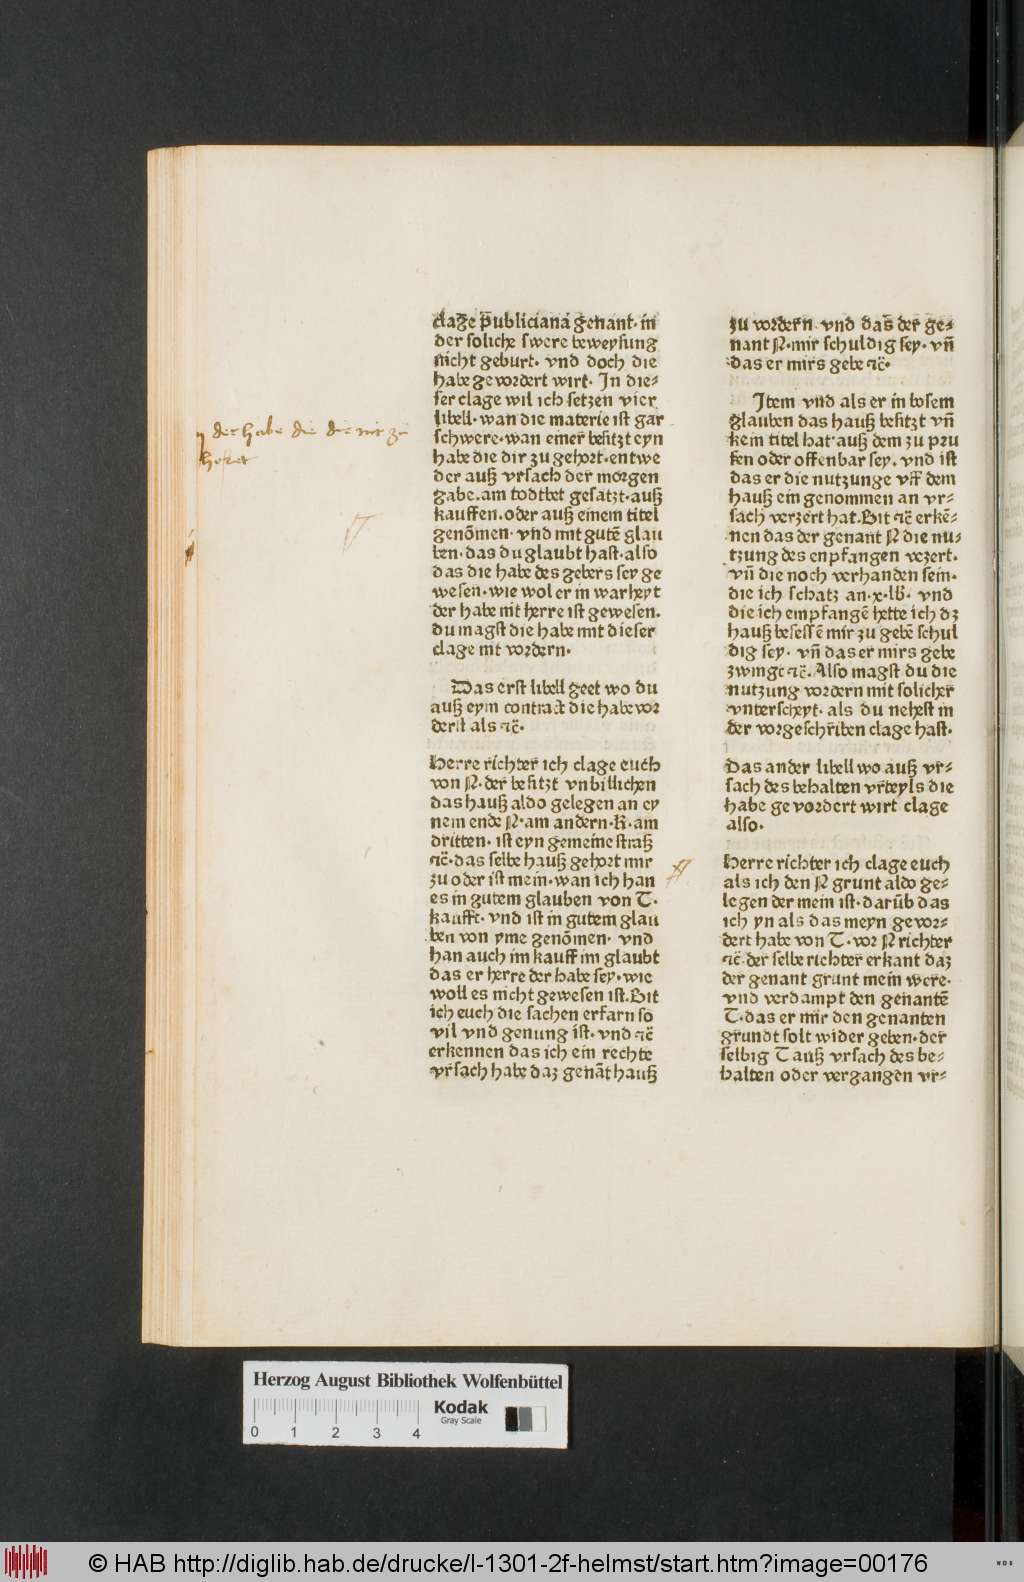 clage publiciana genant· in
der soliche swere beweysung
nicht geburt· vnd doch die
habe gevordert wirt· In die⸗
ser clage wil ich setzen vier
libell· wan die materie ist gar
schwere· wan einer besitzt eyn
habe die dir zu gehort· entwe
der auß vrsach der morgen
gabe. am todtbet gesatzt· auß
kauffen. oder auß einem titel
genōmen· vnd mit gutē glau
ben· das du glaubt hast· also
das die habe des gebers sey ge
wesen· wie wol er in warheyt
der habe nit herre ist gewesen.
du magst die habe mit dieser
clage nit vordern·
Das erst libell geet wo du
auß eym contract die habe vor
derst als ⁊c̄·
Herre richter ich clage euch
von N· der besitzt vnbillichen
das hauß aldo gelegen an ey
nem ende N· am andern· R· am
dritten· ist eyn gemeine straß
⁊c̄· das selbe hauß gehort mir
zu oder ist mein· wan ich han
es in gutem glauben von T·
kaufft· vnd ist in gutem glau
ben von yme genōmen· vnd
han auch im kauff im glaubt
das er herre der habe sey· wie
woll es nicht gewesen ist. Bit
ich euch die sachen erfarn so
vil vnd genung ist· vnd ⁊c̄
erkennen das ich ein rechte
vrsach habe daz genāt hauß
zu vordern vnd das der ge⸗
nant N· mir schuldig sey· vn̄
das er mirs gebe ⁊c̄·
Item vnd als er in bosem
glauben das hauß besitzt vn̄
kein titel hat· auß dem zu pru
fen oder offenbar sey. vnd ist
das er die nutzunge vff dem
hauß ein genommen an vr⸗
sach verzert hat. Bit ⁊c̄ erkē⸗
nen das der genant N die nu⸗
tzung des enpfangen vezert·
vn̄ die noch verhanden sein·
die ich schatz an· x· lb̄· vnd
die ich empfangē hette ich dz
hauß besessē mir zu gebē schul
dig sey· vn̄ das er mirs gebe
zwingt ⁊c̄· Also magst du die
nutzung vordern mit solicher
vnterscheyt· als du nehest in
der vorgeschriben clage hast·
Das ander libell wo auß vr⸗
sach des behalten vrteyls die
habe gevordert wirt clage
also·
Herre richter ich clage euch
als ich den N grunt aldo ge⸗
legen der mein ist· darūb das
ich yn als das meyn gevor⸗
dert habe von T· vor N richter
⁊c̄ der selbe richter erkant daz
der genant grunt mein were·
vnd verdampt den genantē
T· das er mir den genanten
grundt solt wider geben· der
selbig T auß vrsach des be⸗
halten oder vergangen vr⸗
der habe die die mir zu
horet
Herzog August Bibliothek Wolfenbüttel
Kodak
Gray Scale
0 1 2 3 4
© HAB http://diglib.hab.de/drucke/l-1301-2f-helmst/start.htm?image=00176